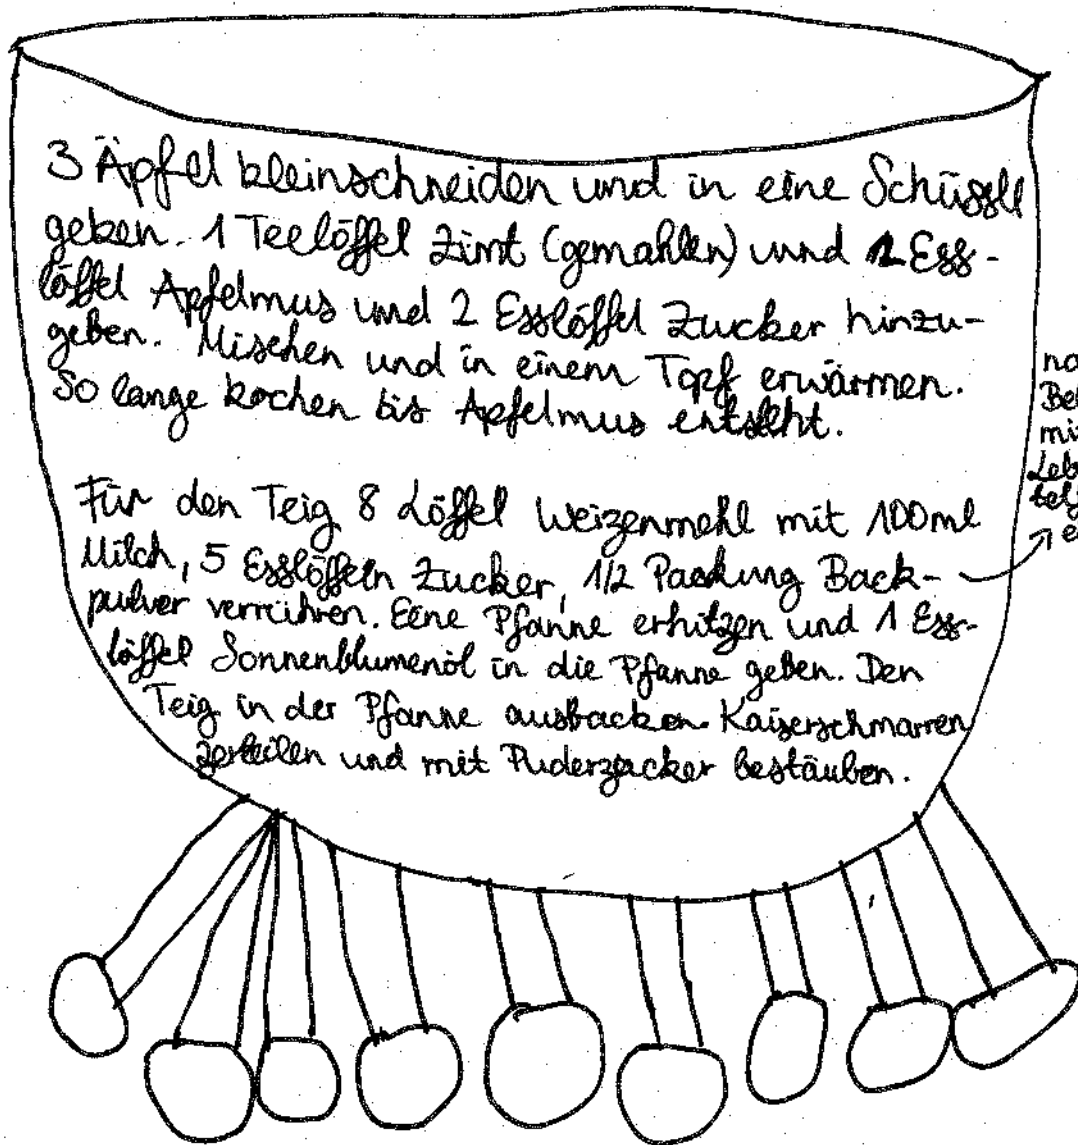 3 Äpfel kleinschneiden und in eine Schüssel
geben. 1 Teelöffel Zimt (gemahlen) und 1 Ess-
löffel Apfelmus und 2 Esslöffel Zucker hinzu-
geben. Mischen und in einem Topf erwärmen.
So lange kochen bis Apfelmus entsteht.
Für den Teig 8 Löffel Weizenmehl mit 100ml
Milch, 5 Esslöffeln Zucker, 1/2 Packung Back-
pulver verrühren. Eine Pfanne erhitzen und 1 Ess-
löffel Sonnenblumenöl in die Pfanne geben. Den
Teig in der Pfanne ausbacken. Kaiserschmarren
zerteilen und mit Puderzucker bestäuben.